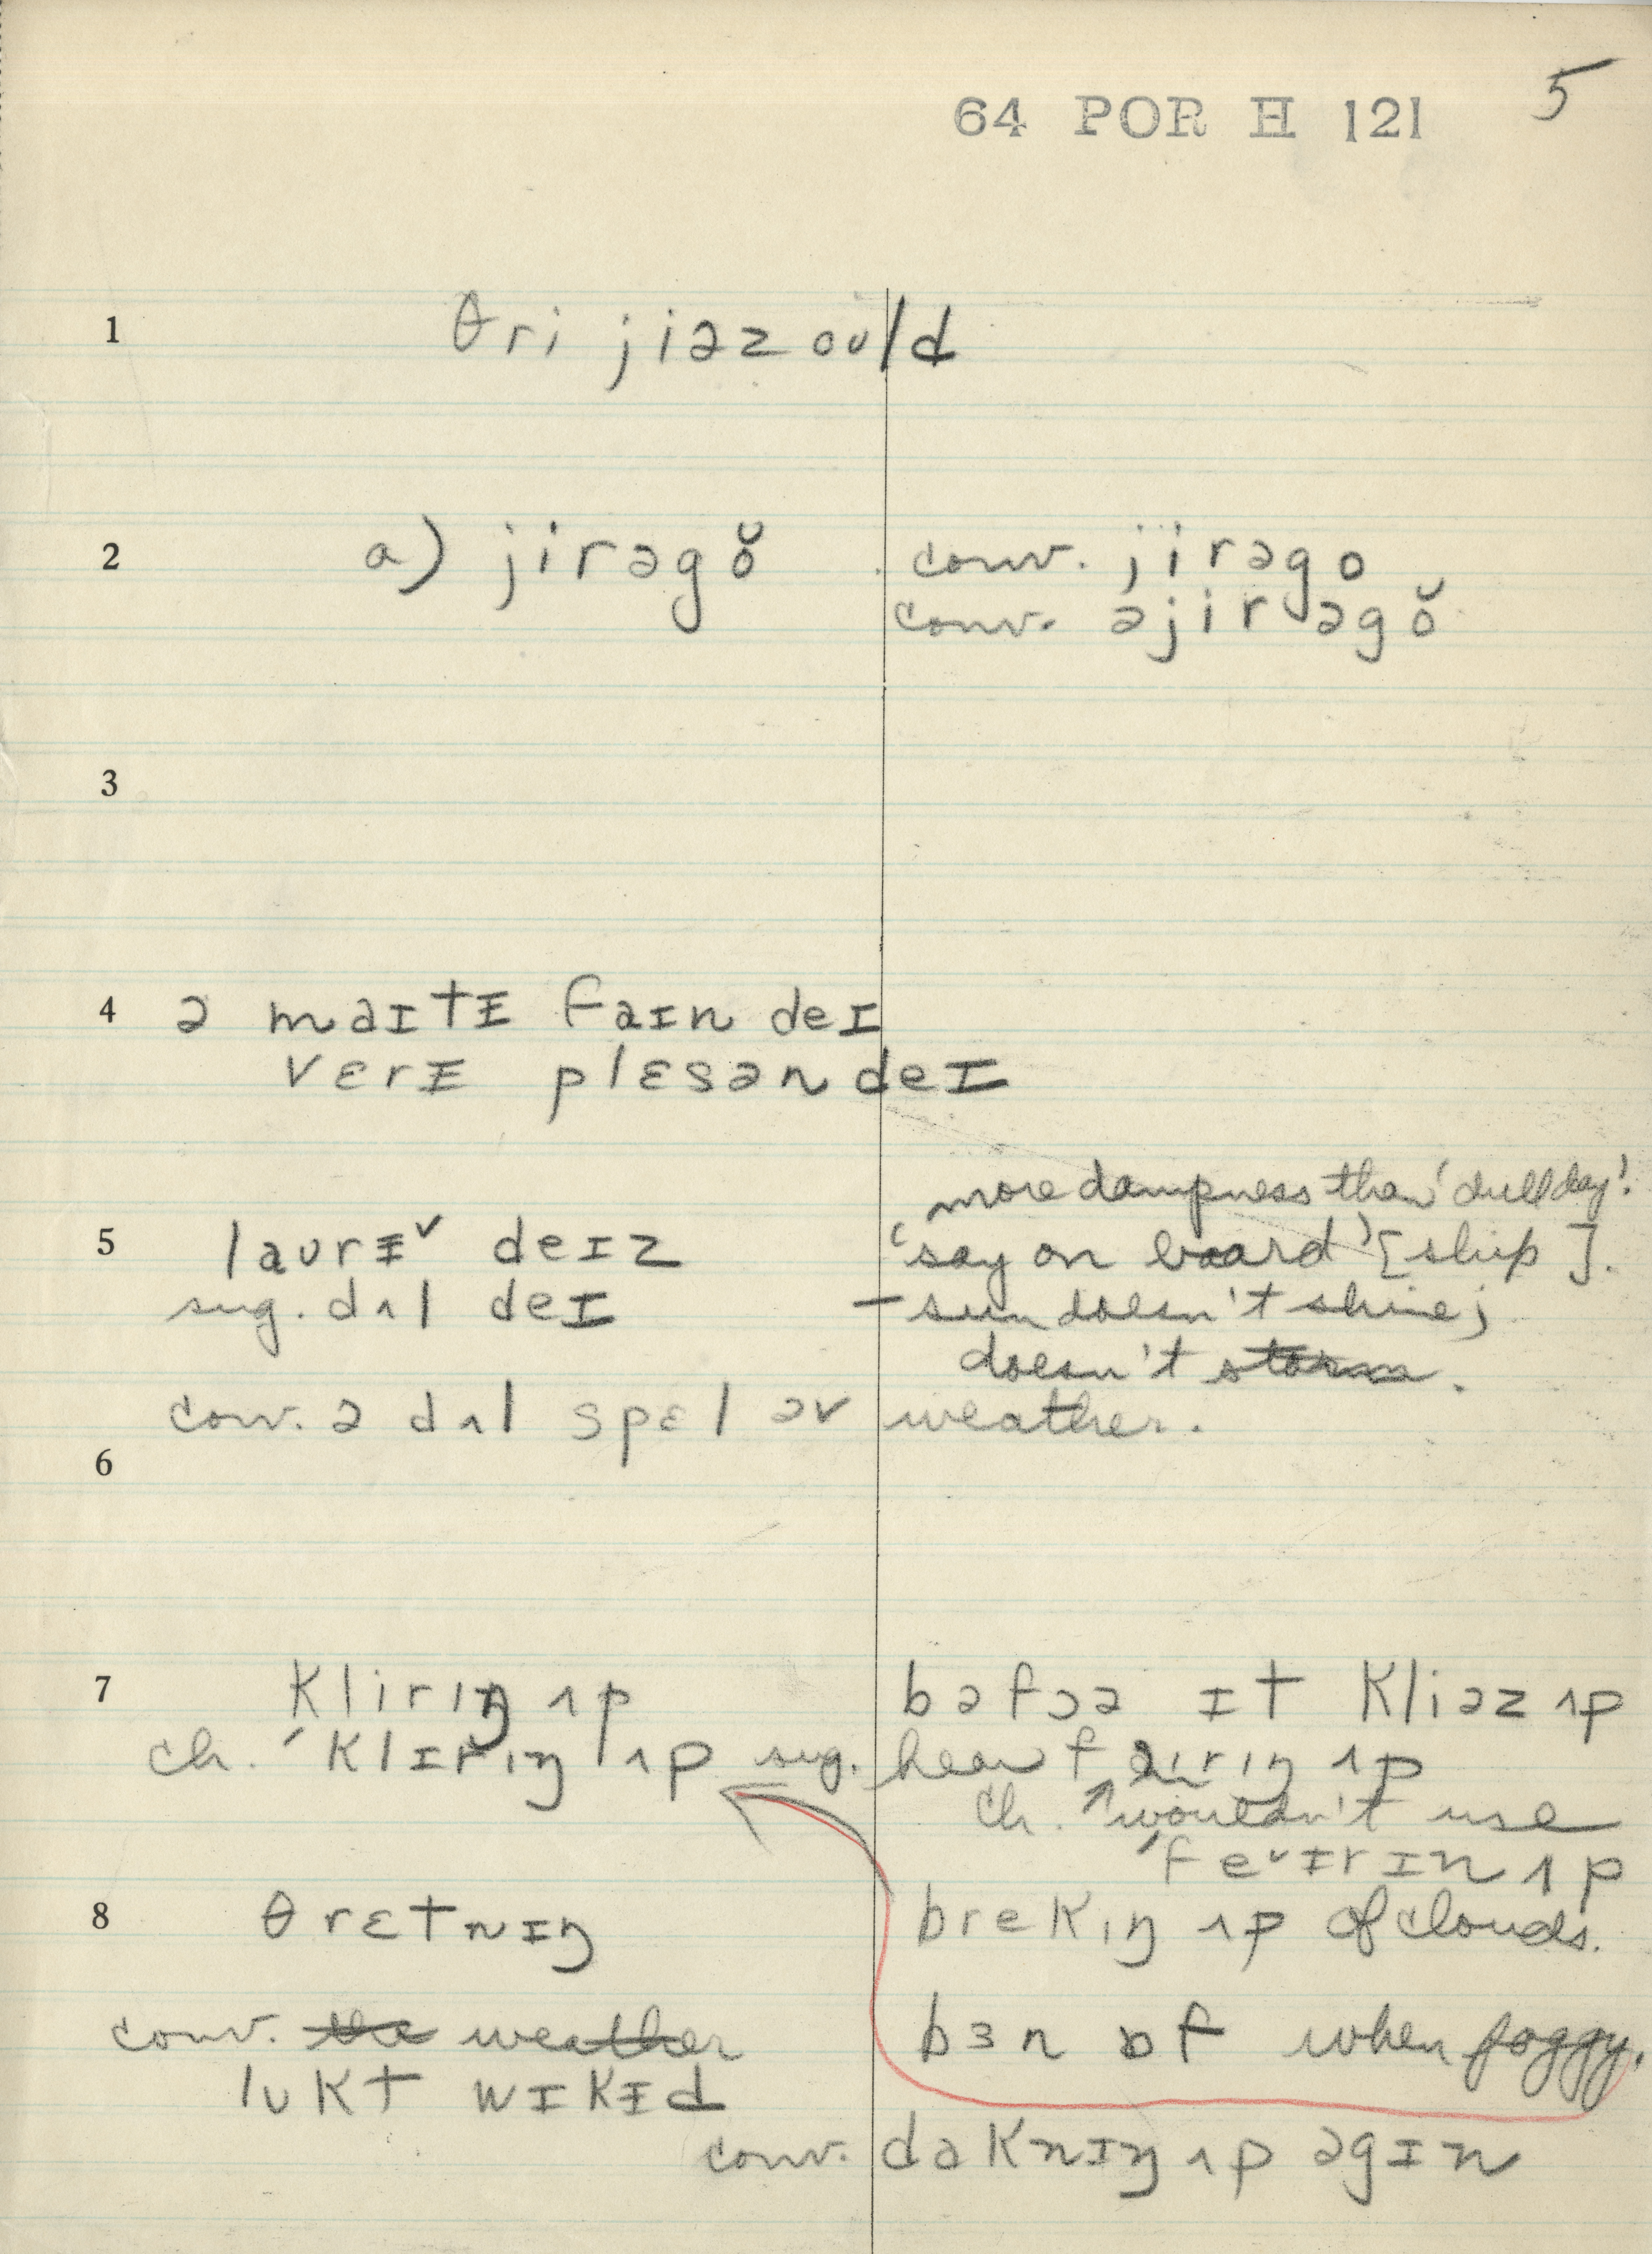 64 POR H 121 5
1 θri jiəz oʊld
2 a) jirəgŏ conv. jirəgo
conv. əjirəgŏ
3
4 ə maɪtɨ faɪn deɪ
vɛrɨ plɛsən deɪ
more dampness than 'dull day'.
5 laʊrɨ˅ deɪz 'say on board' [ship].
sug. dʌl deɪ – sun doesn't shine;
doesn't storm.
conv. ə dʌl spɛl əv weather.
6
7 klirɪŋ ʌp bəfɔə ɪt kliəz ʌp
ch. ˊklɪrɪŋ ʌp sug. hear f irɪŋ ʌp
ch. wouldn't use
ˊfe˅ɨrɪn ʌp
8 θrɛtnɪŋ brekɪŋ ʌp of clouds.
conv. the weather bɜn ɒf when foggy.
lʊkt wɪkɨd
conv. daknɪŋ ʌp əgɪn